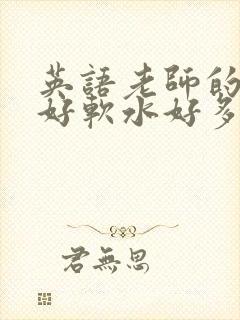 英語老師的
好軟水好多
君無思